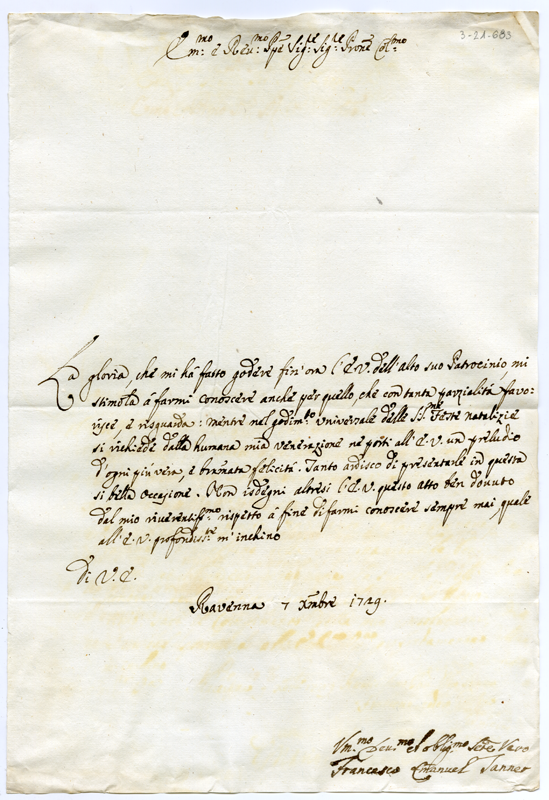 3-21-683
Em:mo e Rev:mo Ppe Sig:re Sig:re Prone Col:mo
La gloria, che mi há fatto godere fin'ora l'E.V. dell'alto suo Patrocinio mi
stimola á farmi conoscere anche per quello che con tanta parzialitá favo-
risce e risguarda: mentre nel godim:to universale delle S:S:me Feste natalizie
si richiede dalla humana mia venerazione ne porti all'E.V. un preludio
d'ogni piú vera, e bramata felicitá. Tanto ardisco di presentarle in questa
si bella occasione. Non isdegni altresi l'E.V. questo atto ben dovuto
del mio riverentiss:mo rispetto á fine di farmi conoscere sempre mai, quale
all'E.V. profondiss:te m'inchino
Di V.E.
Ravenna 7 Xmbre 1729.
Um:mo Dev:mo ed obblig:mo Serre Vero
Francesco Emanuel Tanner